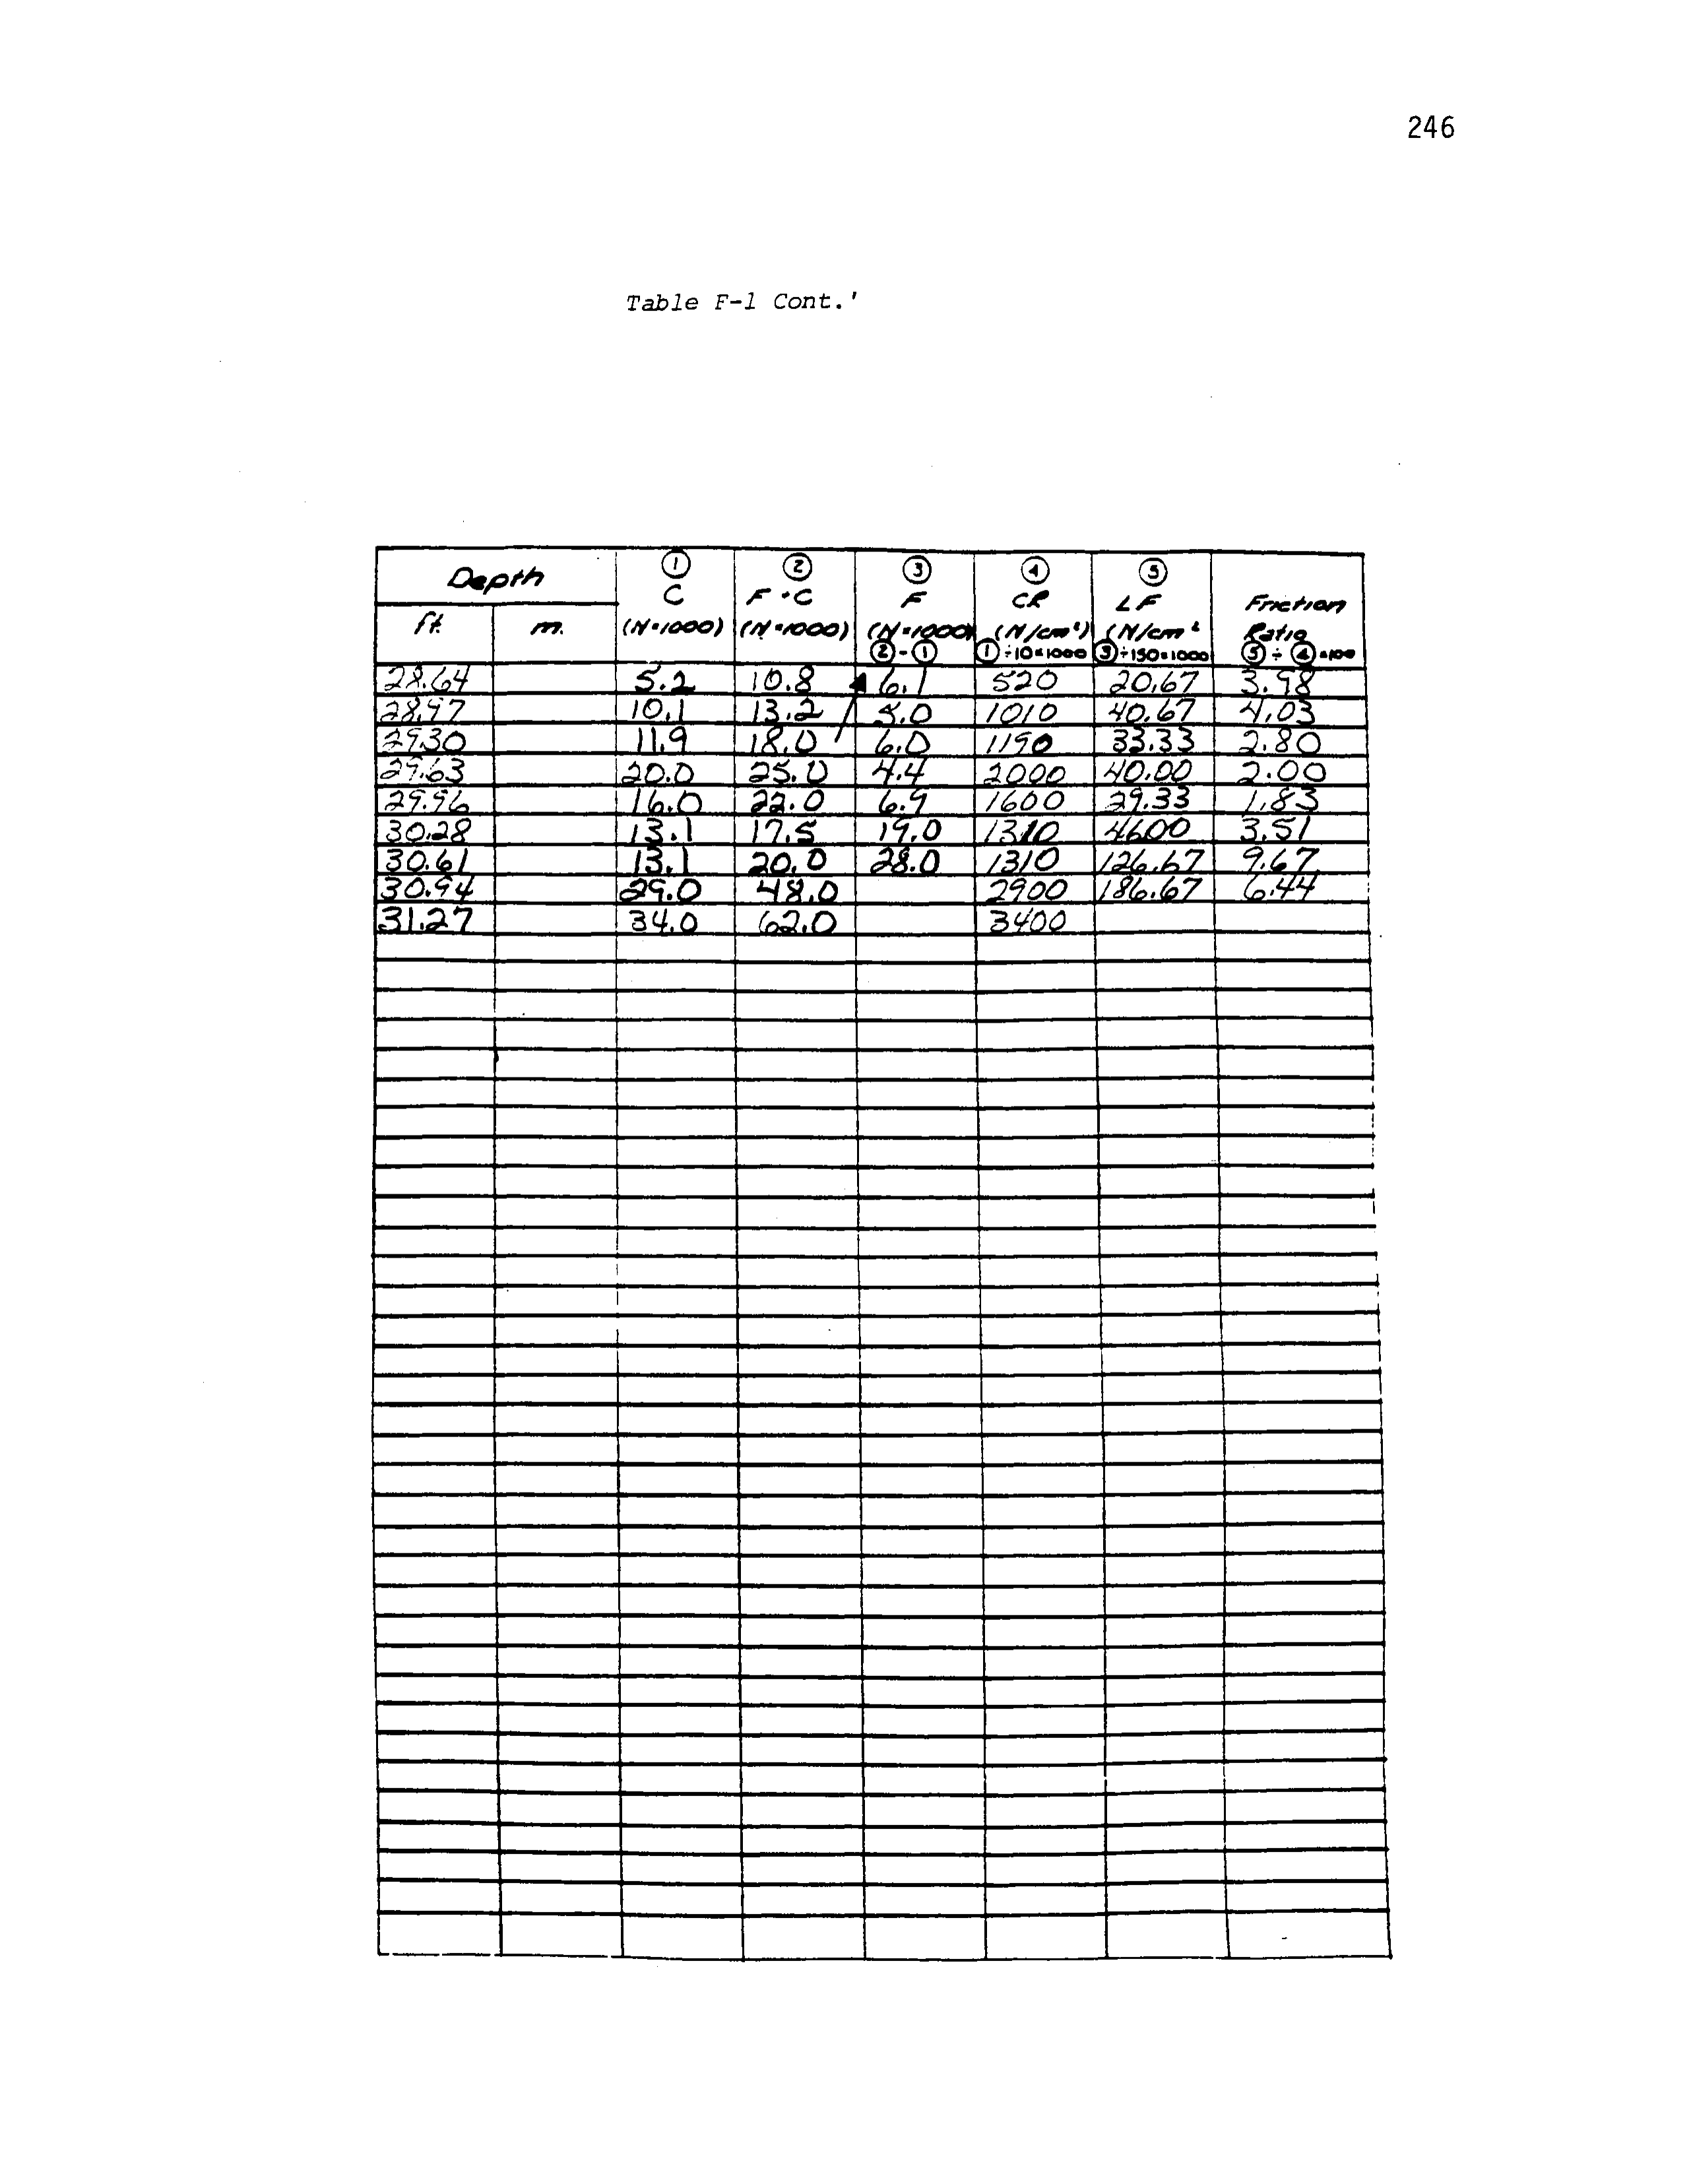 246
Table F-1 Cont.'
Depth ① C ② F+C ③ F ④ CR ⑤ LF Friction Ratio
ft. m. (N×1000) (N×1000) (N×1000) (N/cm²) (N/cm²
②-① ①÷10×1000 ③÷150×1000 ⑤÷④×100
28.64 5.2 10.8 6.1 520 20.67 3.98
28.97 10.1 13.2 5.0 1010 40.67 4.03
29.30 11.9 18.0 6.0 1190 33.33 2.80
29.63 20.0 25.0 4.4 2000 40.00 2.00
29.96 16.0 22.0 6.9 1600 29.33 1.83
30.28 13.1 17.5 19.0 1310 46.00 3.51
30.61 13.1 20.0 28.0 1310 126.67 9.67
30.94 29.0 48.0 2900 186.67 6.44
31.27 34.0 62.0 3400